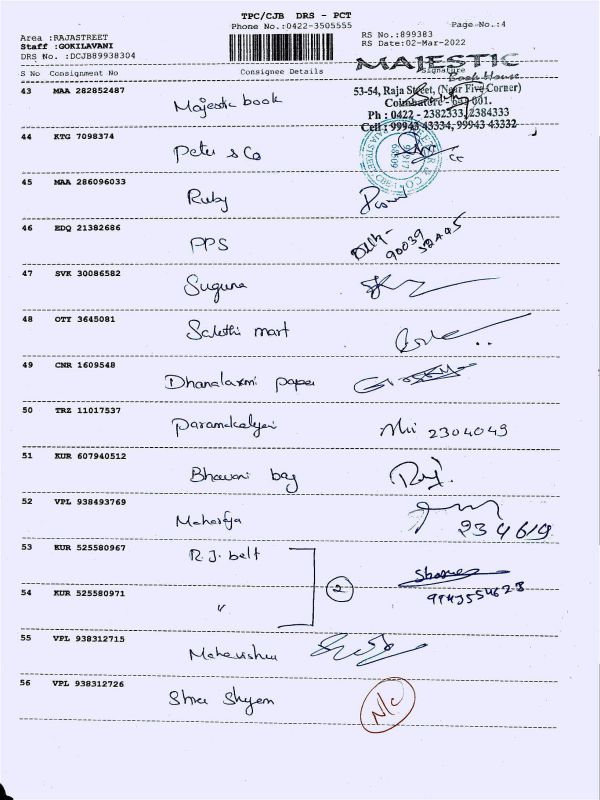 TPC/CJB DRS - PCT
Phone No.:0422-3505555
Page No.:4
Area :RAJASTREET
Staff :GOKILAVANI
DRS No. :DCJB89938304
RS No.:899383
RS Date:02-Mar-2022
S No Consignment No Consignee Details Signature
MAJESTIC
Book House
53-54, Raja Street, (Near Five Corner)
Coimbatore - 641 001.
Ph : 0422 - 2382333, 2384333
Cell : 99943 43334, 99943 43332
43 MAA 282852487 Majestic book
44 KTG 7098374 Peter & Co
45 MAA 286096033 Ruby
46 EDQ 21382686 PPS
47 SVK 30086582 Suguna
48 OTY 3645081 Sakthi mart
49 CNR 1609548 Dhanalaxmi paper
50 TRZ 11017537 Paramakalyani 2304049
51 KUR 607940512 Bhavani bag
52 VPL 938493769 234619
53 KUR 525580967 R.J. belt 2
54 KUR 525580971 "
55 VPL 938312715 Mahavishnu
56 VPL 938312726 Shree Shyam N/C